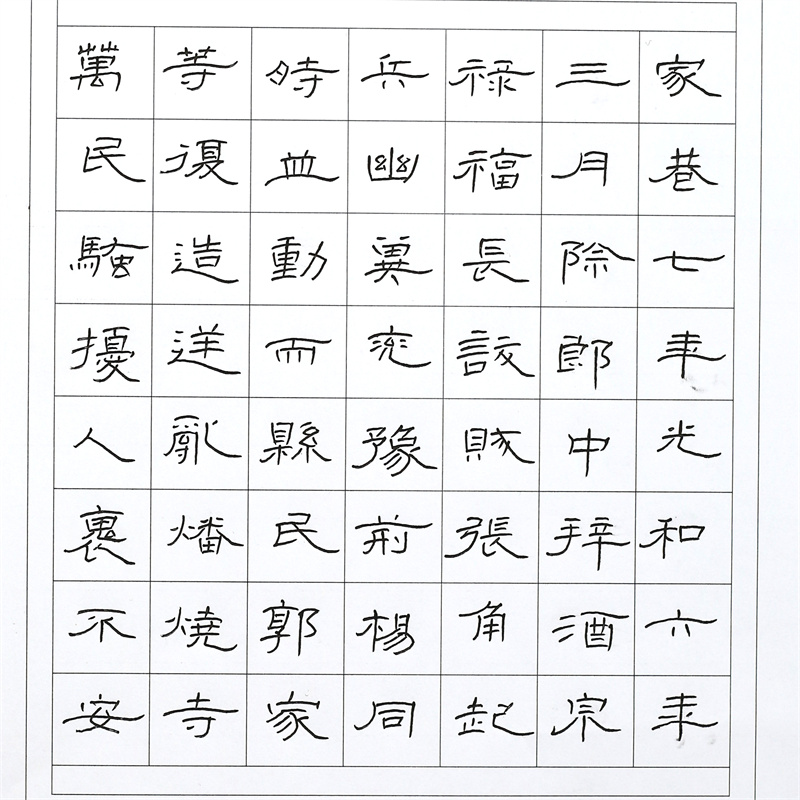 家巷七年光和六年
三月除郎中拜酒宗
祿福長訞賊張角起
兵幽冀兖豫荊楊同
時並動而縣民郭家
等復造逆亂燔燒寺
萬民騷擾人裹不安